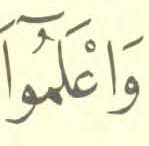 وَاعْلَمُوٓا